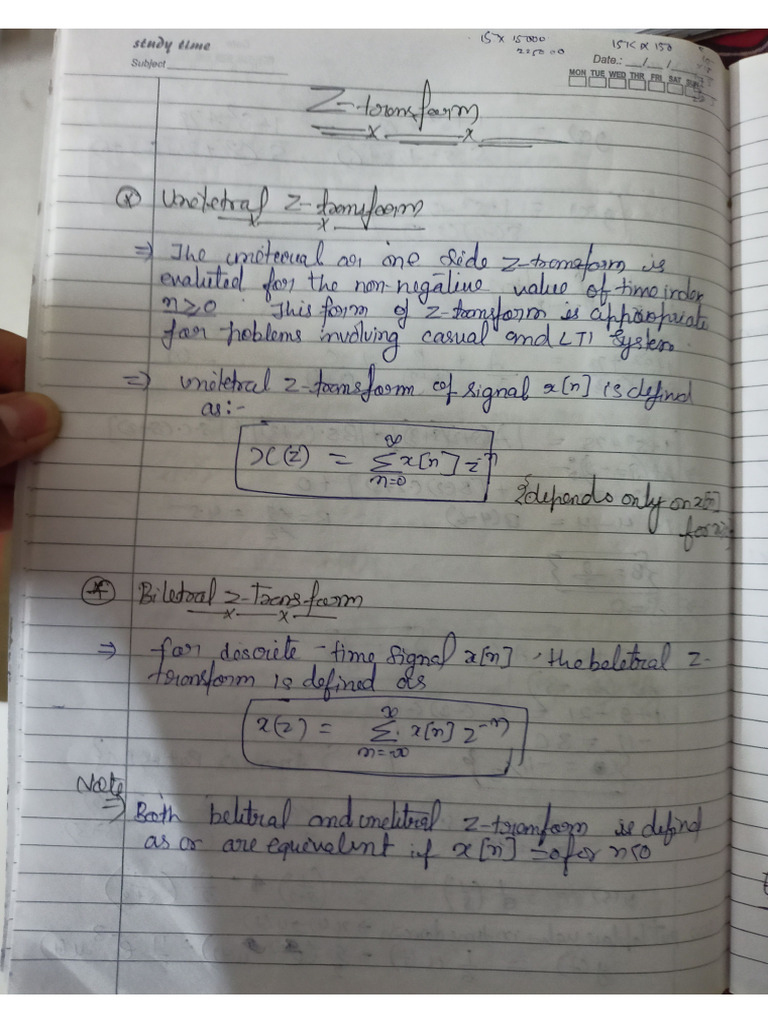 15 x 15000
225000
15K x 150
study time
Subject
Date.: __/__/__
MON TUE WED THR FRI SAT SUN
Z-transform
Uniletral Z-transform
⇒ The unilateral or one side Z-transform is
evaluted for the non-negative value of time index
n≥0. This form of Z-transform is appropriate
for problems involving casual and LTI System.
⇒ Uniletral Z-transform of signal x[n] is defind
as:-
X(z) = ∞ Σ n=0 x[n] z⁻ⁿ
{depends only on x[n]
for
* Biletral Z-Transform
⇒ for discrete-time signal x[n], the beletral Z-
transform is defined as
x(z) = ∞ Σ n=-∞ x[n] z⁻ⁿ
Note
⇒ Both beletral and uneletral Z-transform is defind
as or are equivalent if x[n] =0 for n<0